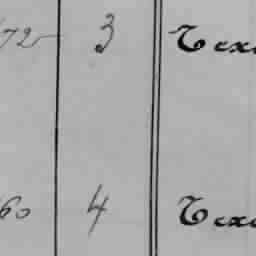 72 3 Texa
60 4 Texa